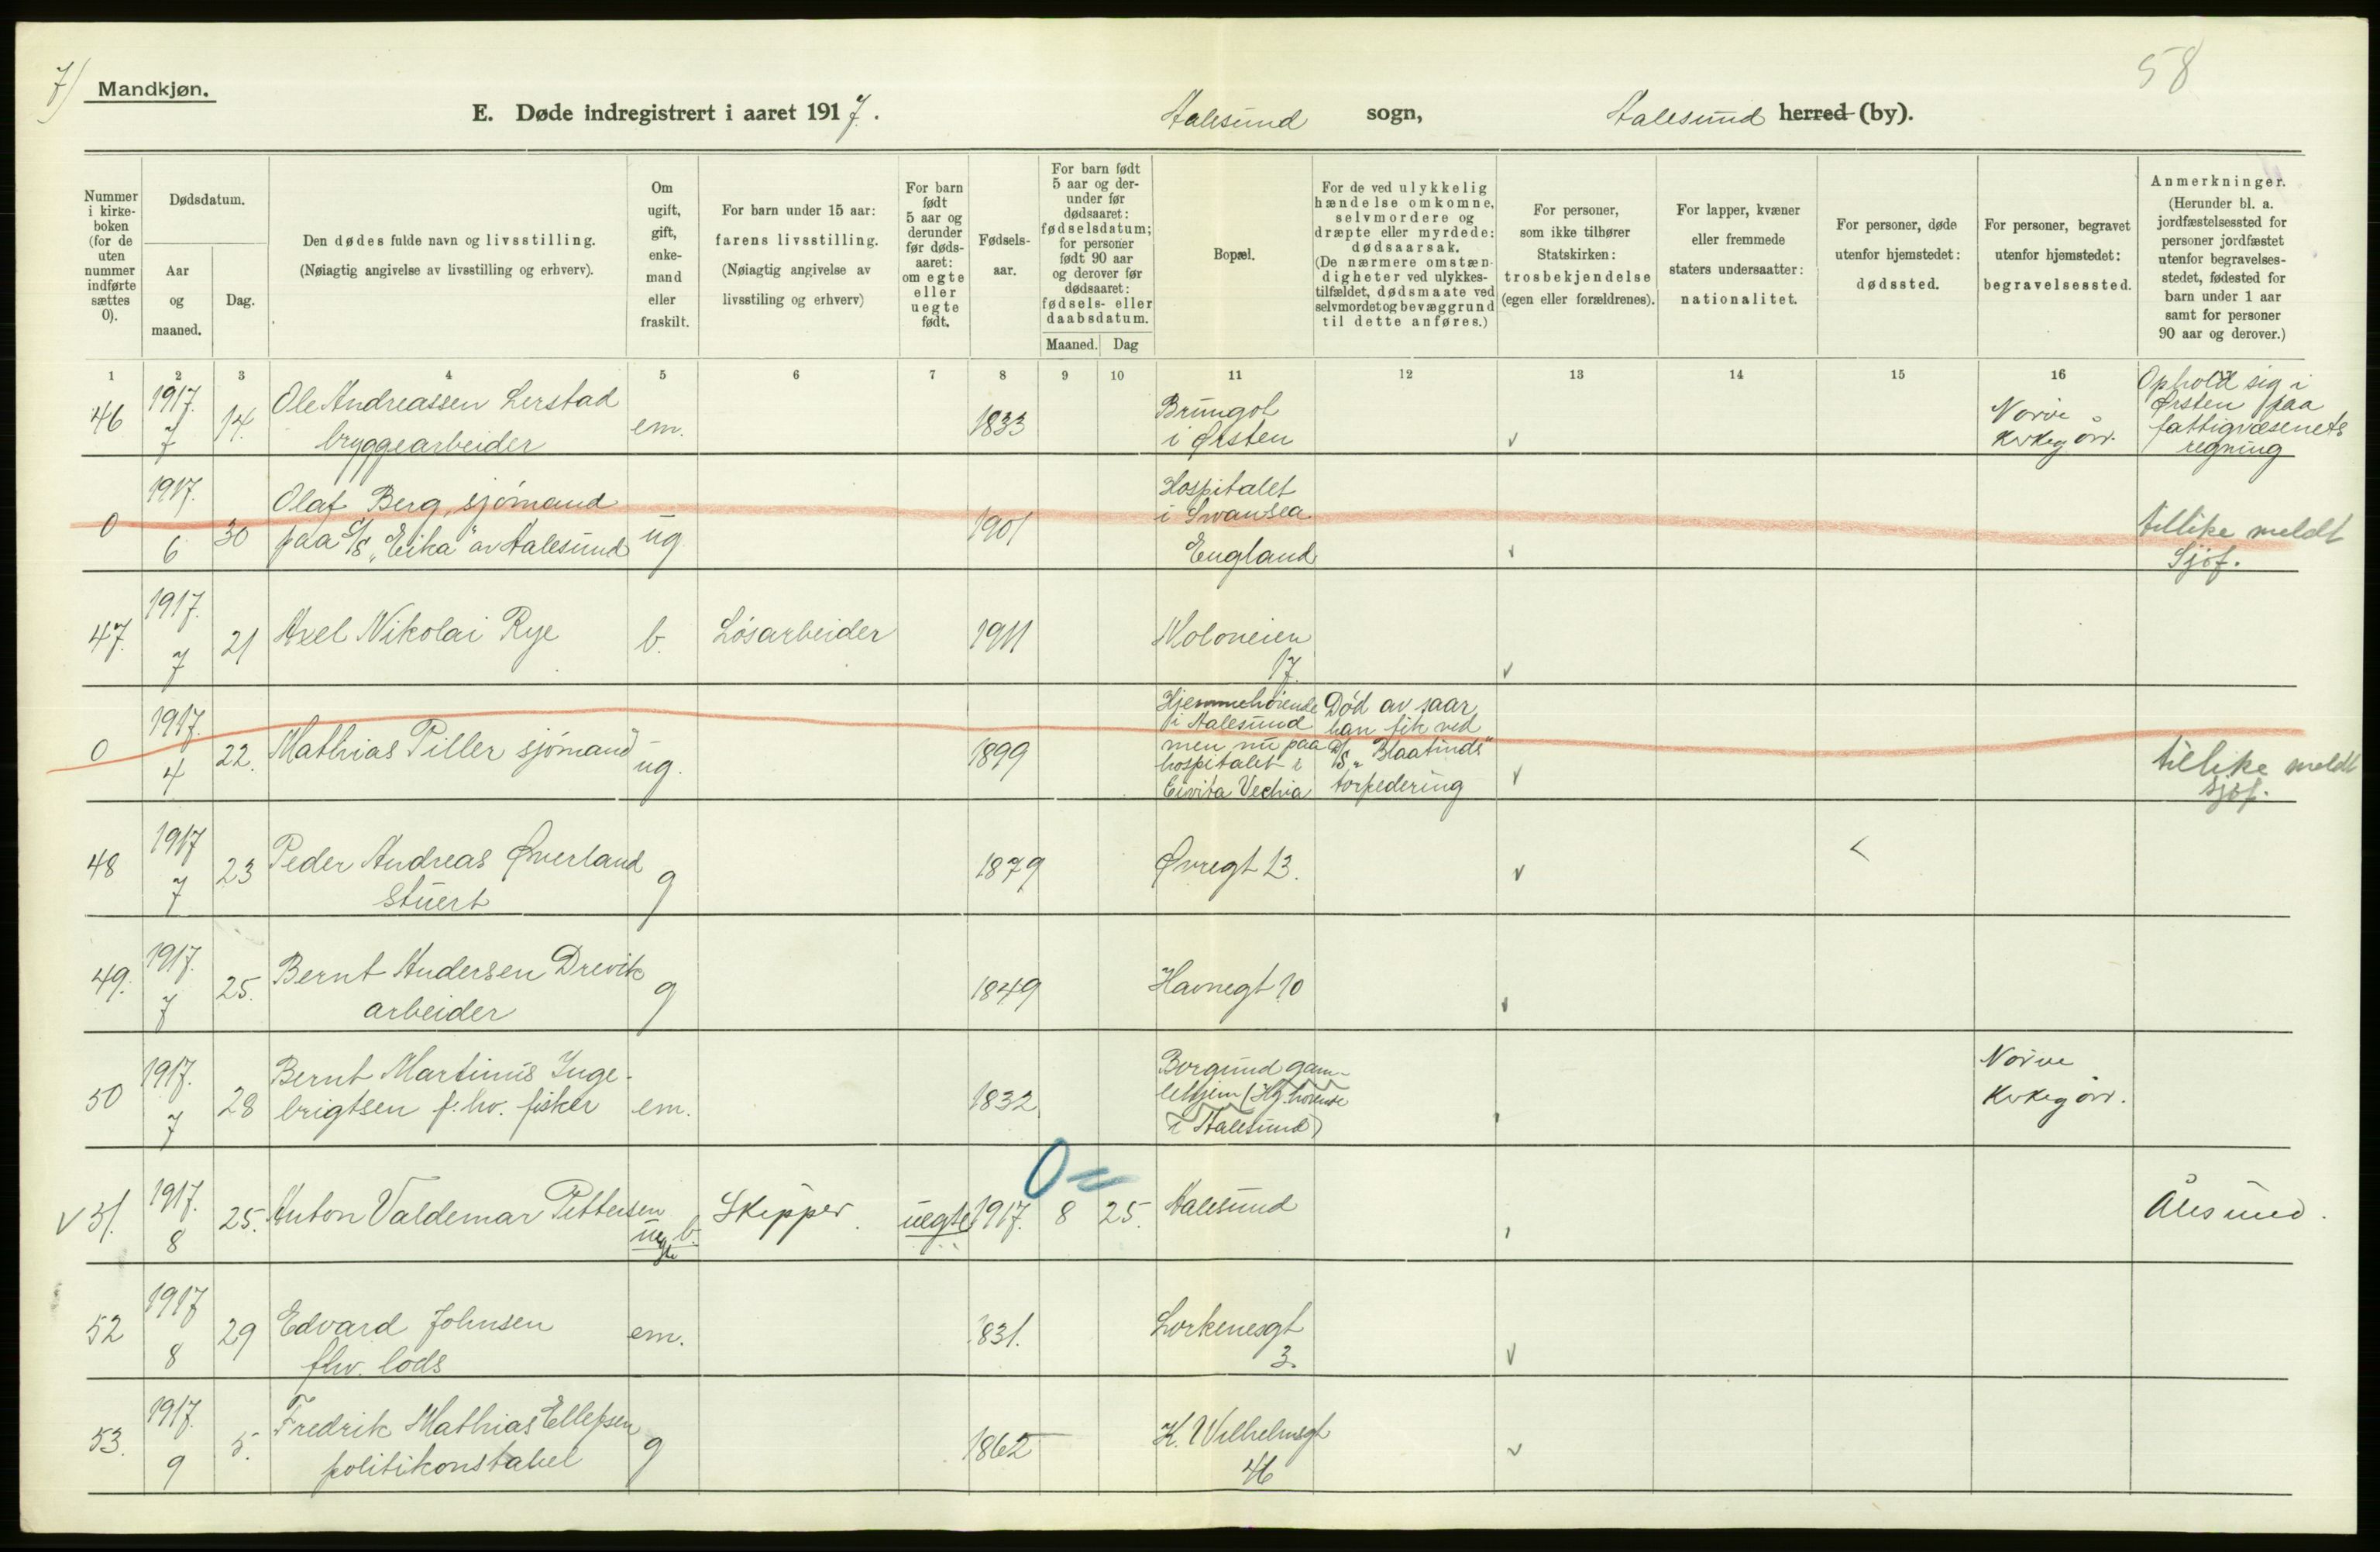 7)
Mandkjøn.
58
E. Døde indregistrert i aaret 1917. Aalesund sogn, Aalesund herred (by).
Nummer i kirke-boken (for de uten nummer indførte sættes 0).
Dødsdatum.
Aar og maaned.
Dag.
Den dødes fulde navn og livsstilling.
(Nøiagtig angivelse av livsstilling og erhverv).
Om ugift, gift, enke-mand eller fraskilt.
For barn under 15 aar: farens livsstilling. (Nøiagtig angivelse av livsstiling og erhverv)
For barn født 5 aar og derunder før døds-aaret: om egte eller uegte født.
Fødsels-aar.
For barn født 5 aar og der-under før dødsaaret: fødselsdatum; for personer født 90 aar og derover før dødsaaret: fødsels- eller daabsdatum.
Maaned. Dag
Bopæl.
For de ved ulykkelig hændelse omkomne, selvmordere og dræpte eller myrdede: dødsaarsak. (De nærmere omstæn-digheter ved ulykkes-tilfældet, dødsmaate ved selvmordet og bevæggrund til dette anføres.)
For personer, som ikke tilhører Statskirken: trosbekjendelse (egen eller forældrenes).
For lapper, kvæner eller fremmede staters undersaatter: nationalitet.
For personer, døde utenfor hjemstedet: dødssted.
For personer, begravet utenfor hjemstedet: begravelsessted.
Anmerkninger. (Herunder bl. a. jordfæstelsessted for personer jordfæstet utenfor begravelses-stedet, fødested for barn under 1 aar samt for personer 90 aar og derover.)
1 2 3 4 5 6 7 8 9 10 11 12 13 14 15 16
46 1917. 7 14. Ole Andreassen Lerstad
bryggearbeider em. 1833
Brungot
i Ørsten
Nørve
Kirkegård.
Ophold sig i
Ørsten paa
fattigvæsenets
regning
0 1917. 6 30 Olaf Berg, sjömand
paa S/S „Eika" av Aalesund ug 1901
Hospitalet
i Swansea
England
tillike meldt
Sjöf.
47. 1917. 7 21 Axel Nikolai Rye b. Lösarbeider 1911
Moloveien
17.
0 1917. 4 22. Mathias Piller sjömand ug. 1899
Hjemmehörende
i Aalesund
men nu paa
hospitalet i
Civita Vechia
Död av saar
han fik ved
D/S „Blaatinds"
torpedering
tillike meldt
sjöf.
48 1917 7 23 Peder Andreas Øverland
Stuert g 1879 Øvregt 13.
49. 1917. 7 25. Bernt Andersen Drevik
arbeider g 1849 Havnegt 10
50 1917. 7 28 Bernt Martinus Inge-
brigtsen f. hv. fisker em. 1832
Borgund gam-
lehjem (Hj.hörende
i Aalesund)
Nørve
Kirkegård.
0=
v 51. 1917. 8 25. Anton Valdemar Pettersen
uegte b. Skipper. uegte 1917. 8 25. Aalesund Ålesund.
52 1917 8 29 Edvard Johnsen
fhv. lods em. 1831.
Lorkenesgt
3.
53. 1917. 9 5. Fredrik Mathias Ellefsen
politikonstabel g 1862
K. Wilhelmsgt
46